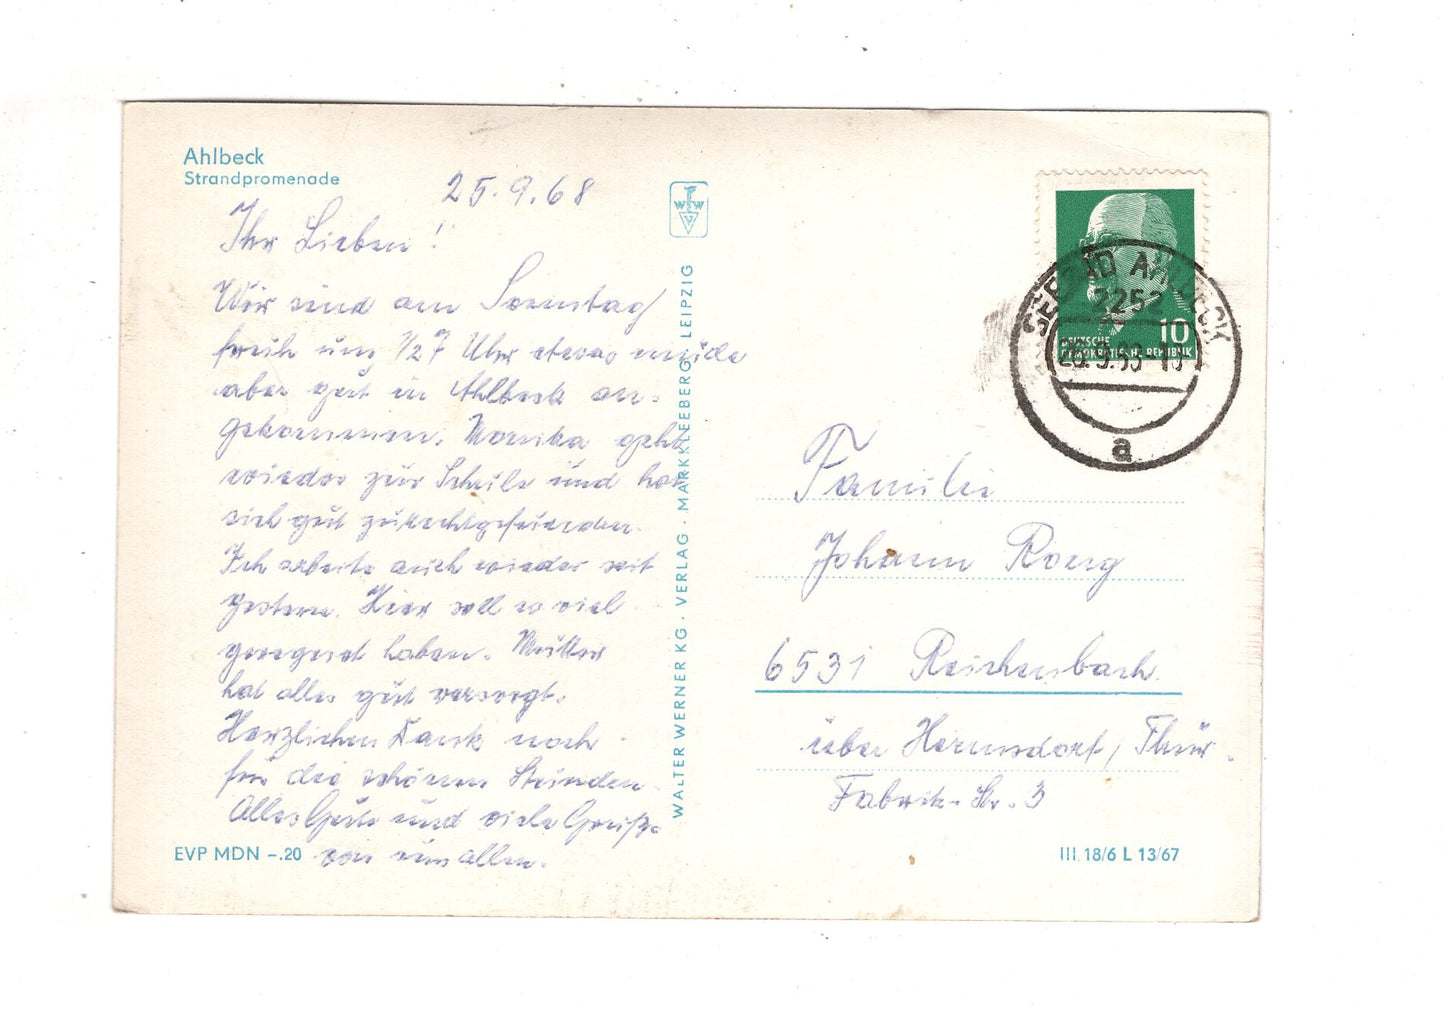 Ahlbeck
Strandpromenade
25.9.68
Ihr Lieben!
Wir sind am Sonntag
früh um 1/2 7 Uhr etwas müde
aber gut in Ahlbeck an-
gekommen. Monika geht
wieder zur Schule und hat
sich gut zurechtgefunden.
Ich arbeite auch wieder seit
gestern. Hier soll es viel
geregnet haben. Mutter
hat alles gut versorgt.
Herzlichen Dank noch
für die schönen Stunden.
Alles Gute und viele Grüße
von uns allen.
EVP MDN –.20
WALTER WERNER KG · VERLAG · MARKKLEEBERG · LEIPZIG
WWV
10
DEUTSCHE
DEMOKRATISCHE REPUBLIK
SEEBAD AHLBECK
2252
a
Familie
Johann
6531 Reichenbach
über Hermsdorf/Thür.
Fabrik-Str. 3
III 18/6 L 13/67